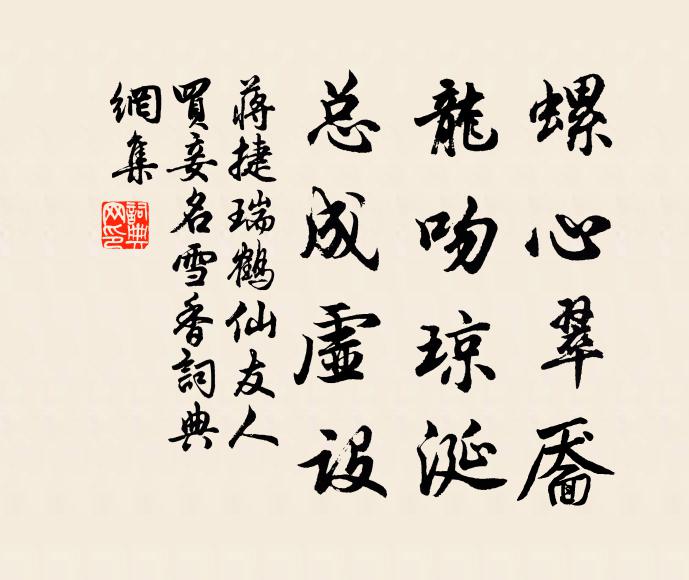 螺心翠靨
龍吻琼涎
总成虛设
蒋捷瑞鶴仙友人
買妾名雪香詞典
網集
詞典
网印